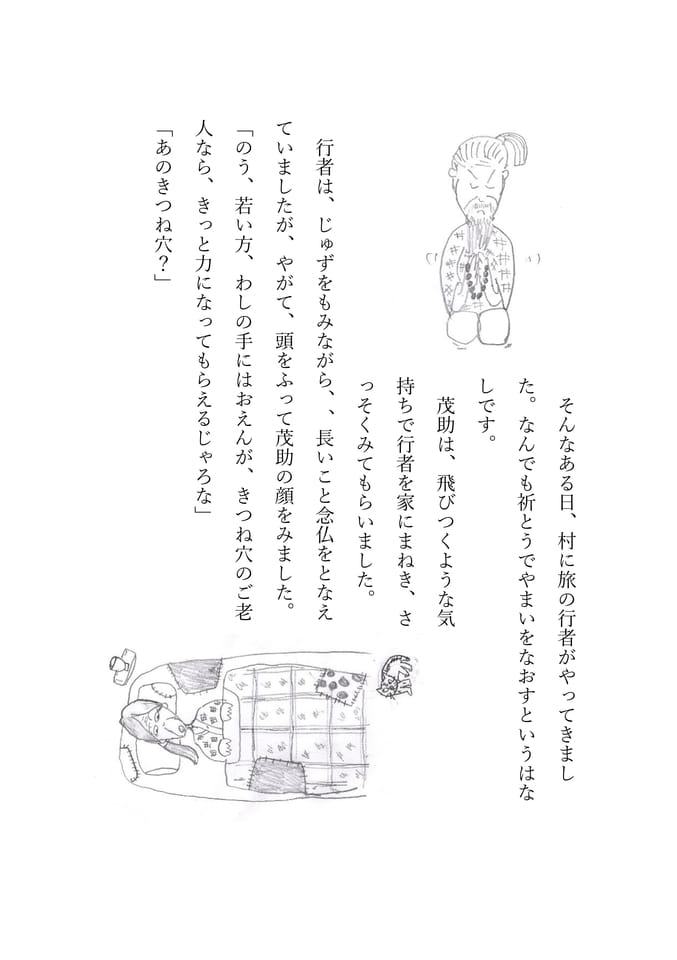 そんなある日、村に旅の行者がやってきまし
た。なんでも祈とうでやまいをなおすというはな
しです。
茂助は、飛びつくような気
持ちで行者を家にまねき、さ
っそくみてもらいました。
行者は、じゅずをもみながら、、長いこと念仏をとなえ
ていましたが、やがて、頭をふって茂助の顔をみました。
「のう、若い方、わしの手にはおえんが、きつね穴のご老
人なら、きっと力になってもらえるじゃろな」
「あのきつね穴？」